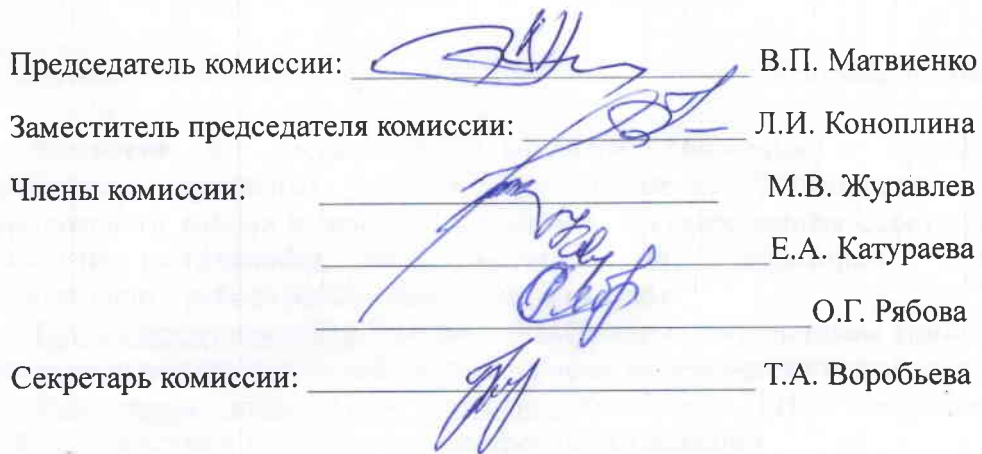 Председатель комиссии: В.П. Матвиенко
Заместитель председателя комиссии: Л.И. Коноплина
Члены комиссии: М.В. Журавлев
Е.А. Катураева
О.Г. Рябова
Секретарь комиссии: Т.А. Воробьева